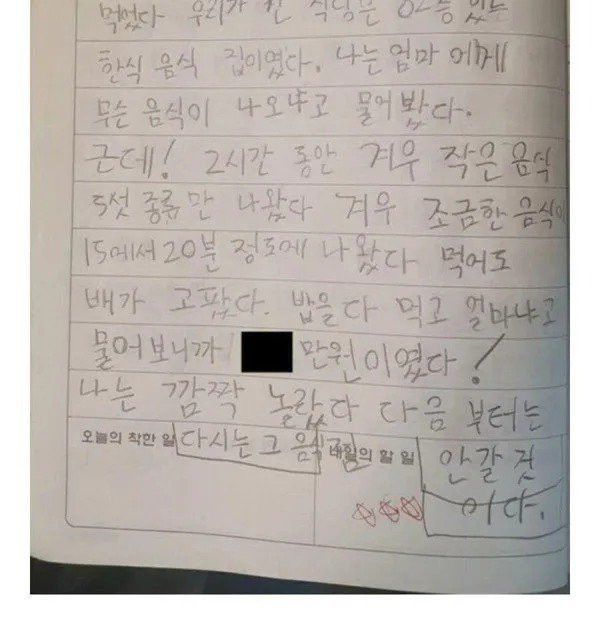 먹었다 우리가 간 식당은 62층 있는
한식 음식 집이였다. 나는 엄마 에게
무슨 음식이 나오냐고 물어봤다.
근데! 2시간 동안 겨우 작은 음식
5섯 종류만 나왔다 겨우 조금한 음식이
15에서 20분 정도에 나왔다 먹어도
배가 고팠다. 밥을 다 먹고 얼마냐고
물어보니까 만원이였다!
나는 깜짝 놀랐다 다음 부터는
오늘의 착한 일 다시는 그 음식점 의 할 일 안갈 것
이다.